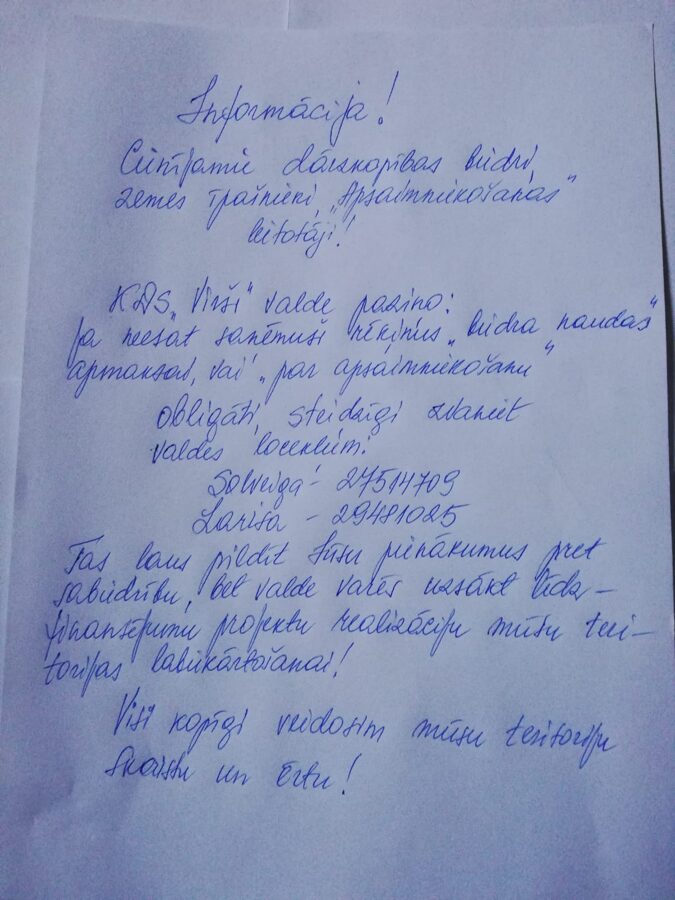 Informācija!
Cienījamie dārzkopības biedri,
zemes īpašnieki, „Apsaimniekošanas"
lietotāji!
KDS „Virši" valde paziņo:
ja neesat saņēmuši rēķinus „biedra naudas"
apmaksai, vai „par apsaimniekošanu"
obligāti, steidzīgi zvaniet
valdes locekļiem:
Solveiga - 27514709
Larisa - 29481025
Tas ļaus pildīt Jūsu pienākumus pret
sabiedrību, bet valde varēs uzsākt līdz-
finansējumu projektu realizāciju mūsu teri-
torijas labiekārtošanai!
Visi kopīgi veidosim mūsu teritoriju
skaistu un ērtu!